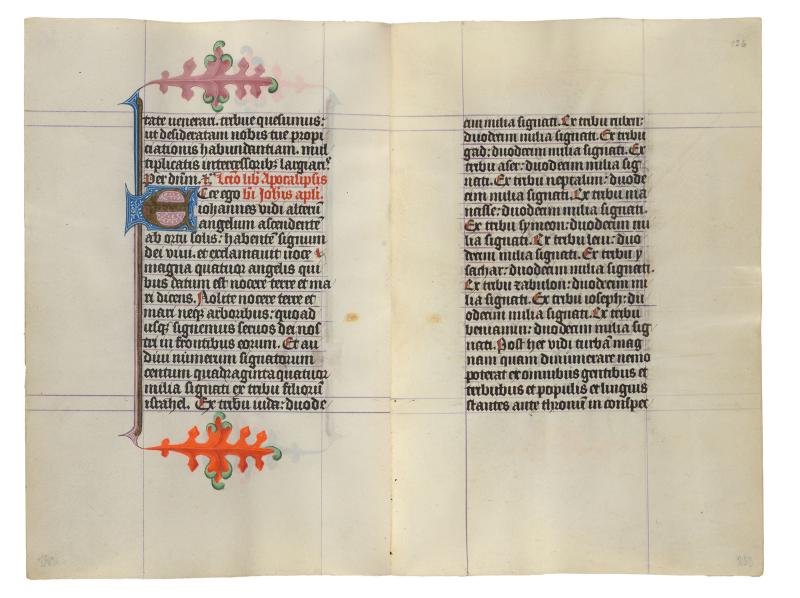 tate venerari. tribue quesumus:
ut desideratam nobis tue propi
ciationis habundantiam. mul
tiplicatis intercessoribꝫ largiaris
Per dn̄m. Lectō lib Apocalipsis
Ecce ego bti Johīs apli.
iohannes vidi alterū
angelum ascendentē
ab ortu solis: habentē signum
dei vivi. et exclamavit voce
magna quatuor angelis qui
bus datum est nocere terre et ma
ri dicens. Nolite nocere terre et
mari neqꝫ arboribus: quoad
usqꝫ signemus servos dei nos
tri in frontibus eorum. Et au
divi numerum signatorum
centum quadraginta quatuor
milia signati ex tribu filiorū
israhel. Ex tribu iuda: duode
cim milia signati. Ex tribu ruben:
duodecim milia signati. Ex tribu
gad: duodecim milia signati. Ex
tribu aser: duodecim milia sig
nati. Ex tribu neptalim: duode
cim milia signati. Ex tribu ma
nasse: duodecim milia signati.
Ex tribu symeon: duodecim mi
lia signati. Ex tribu levi: duo
decim milia signati. Ex tribu y
sachar: duodecim milia signati.
Ex tribu zabulon: duodecim mi
lia signati. Ex tribu ioseph: du
odecim milia signati. Ex tribu
beniamin: duodecim milia sig
nati. Post hec vidi turbā mag
nam quam dinumerare nemo
poterat ex omnibus gentibus et
tribubus et populis et linguis
stantes ante thronū in conspec